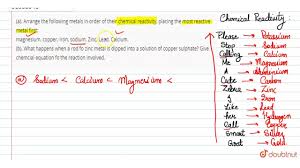 (a). Arrange the following metals in order of their chemical reactivity, placing the most reactive
metal first:
magnesium, copper, iron, sodium, Zinc, Lead, Calcium.
(b). What happens when a rod fo zinc metal is dipped into a solution of copper sulphate? Give
chemical equation fro the reaction involved.
(a) Sodium < Calcium < Magnesium <
Chemical Reactivity:
Please → Potassium
Stop → Sodium
Calling → Calcium
Me → Magnesium
A → Aluminium
Cute → Carbon
Zebra → Zinc
I → Iron
Like → Lead
her → Hydrogen
Call → Copper
Smart → Silver
Goat → Gold
doubtnut